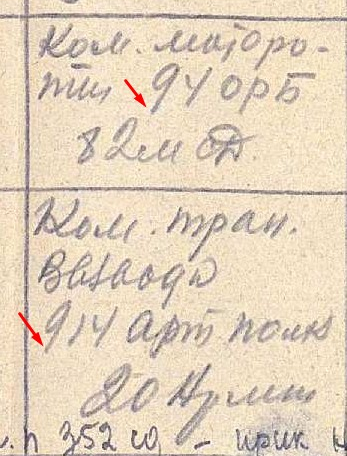 Ком. моторо-
ты 94 орб
82 м СД.
Ком. тран.
Взвода
914 арт полк
20 Армии
п 352 сд -